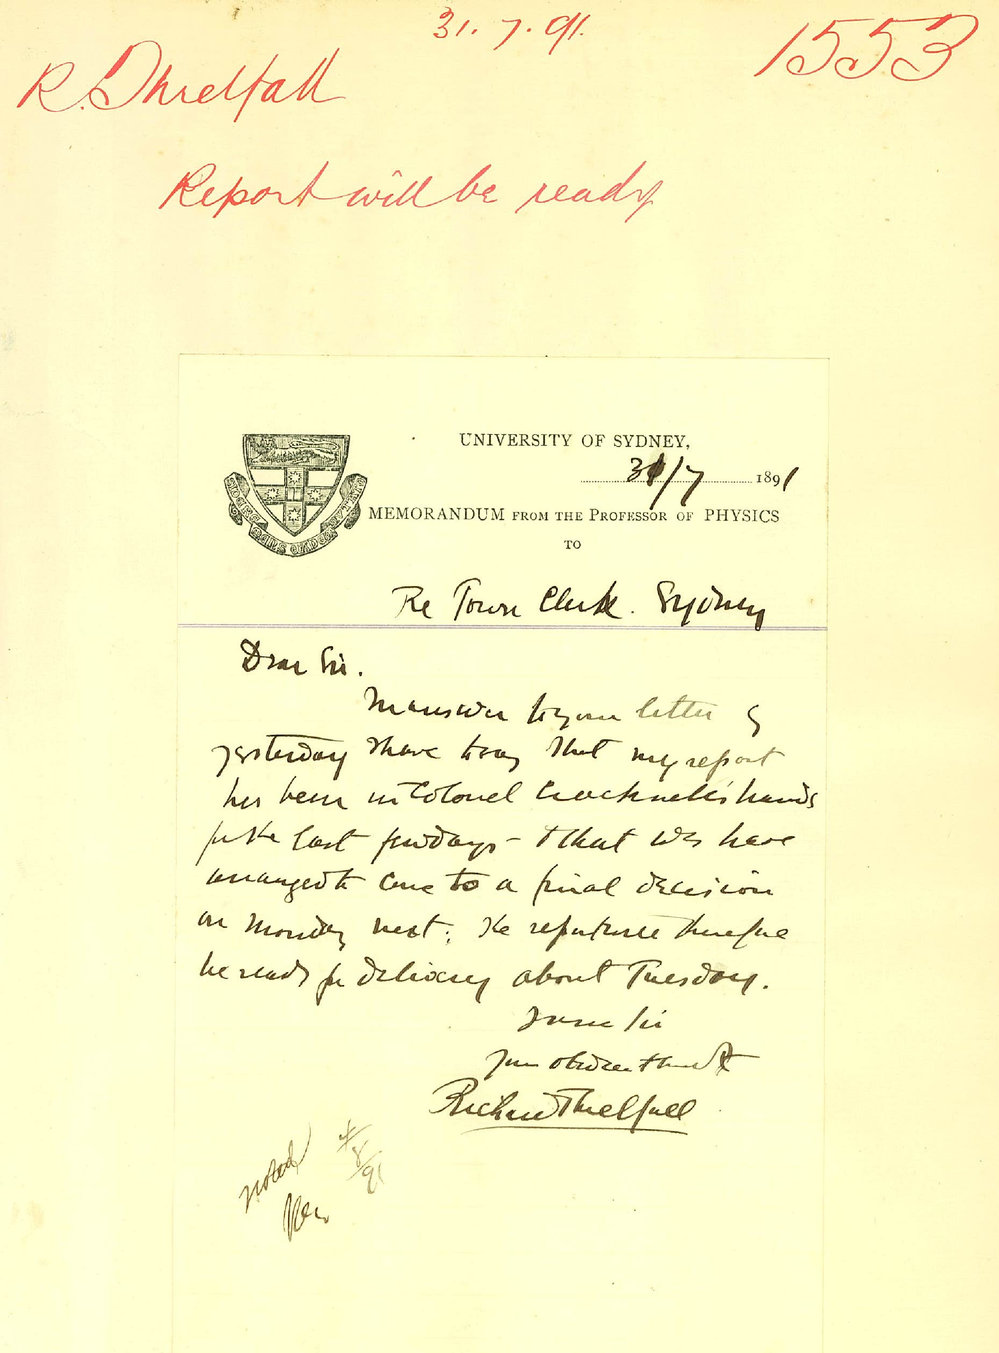 31.7.91.
1553
R. Threlfall
Report will be ready
UNIVERSITY OF SYDNEY,
31/7 1891
MEMORANDUM FROM THE PROFESSOR OF PHYSICS
TO
The Town Clerk. Sydney
Dear Sir.
In answer to your letter of
yesterday I have to say that my report
has been in Colonel Cracknell's hands
for the last few days - & that we have
arranged to come to a final decision
on Monday next. The report will therefore
be ready for delivery about Tuesday.
I am Sir
Your obedient Servt
Richard Threlfall
noted
4/8/91